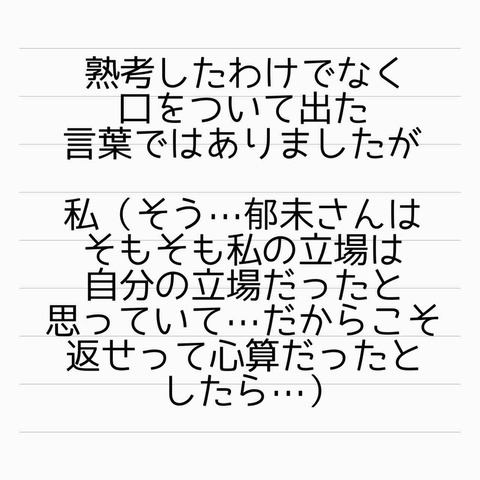 熟考したわけでなく
口をついて出た
言葉ではありましたが
私（そう…郁未さんは
そもそも私の立場は
自分の立場だったと
思っていて…だからこそ
返せって心算だったと
したら…）